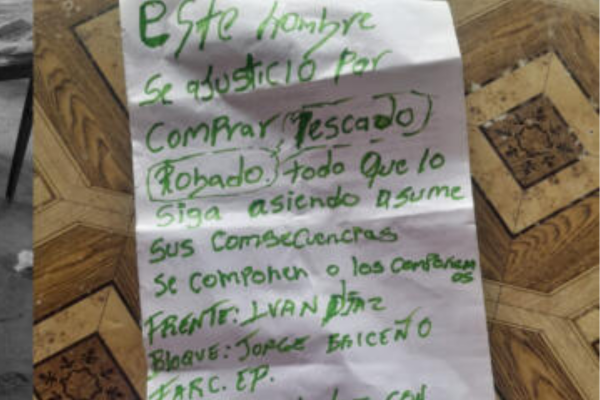 Este hombre
Se ajusticio Por
ComPrar Pescado
Robado. todo Que lo
siga asiendo asume
sus ComseCuencias
se componen o los componem
os
FRENTE: IVAN DIAZ
BLOQUE: JORGE BRICEÑO
FARC. EP.
CON